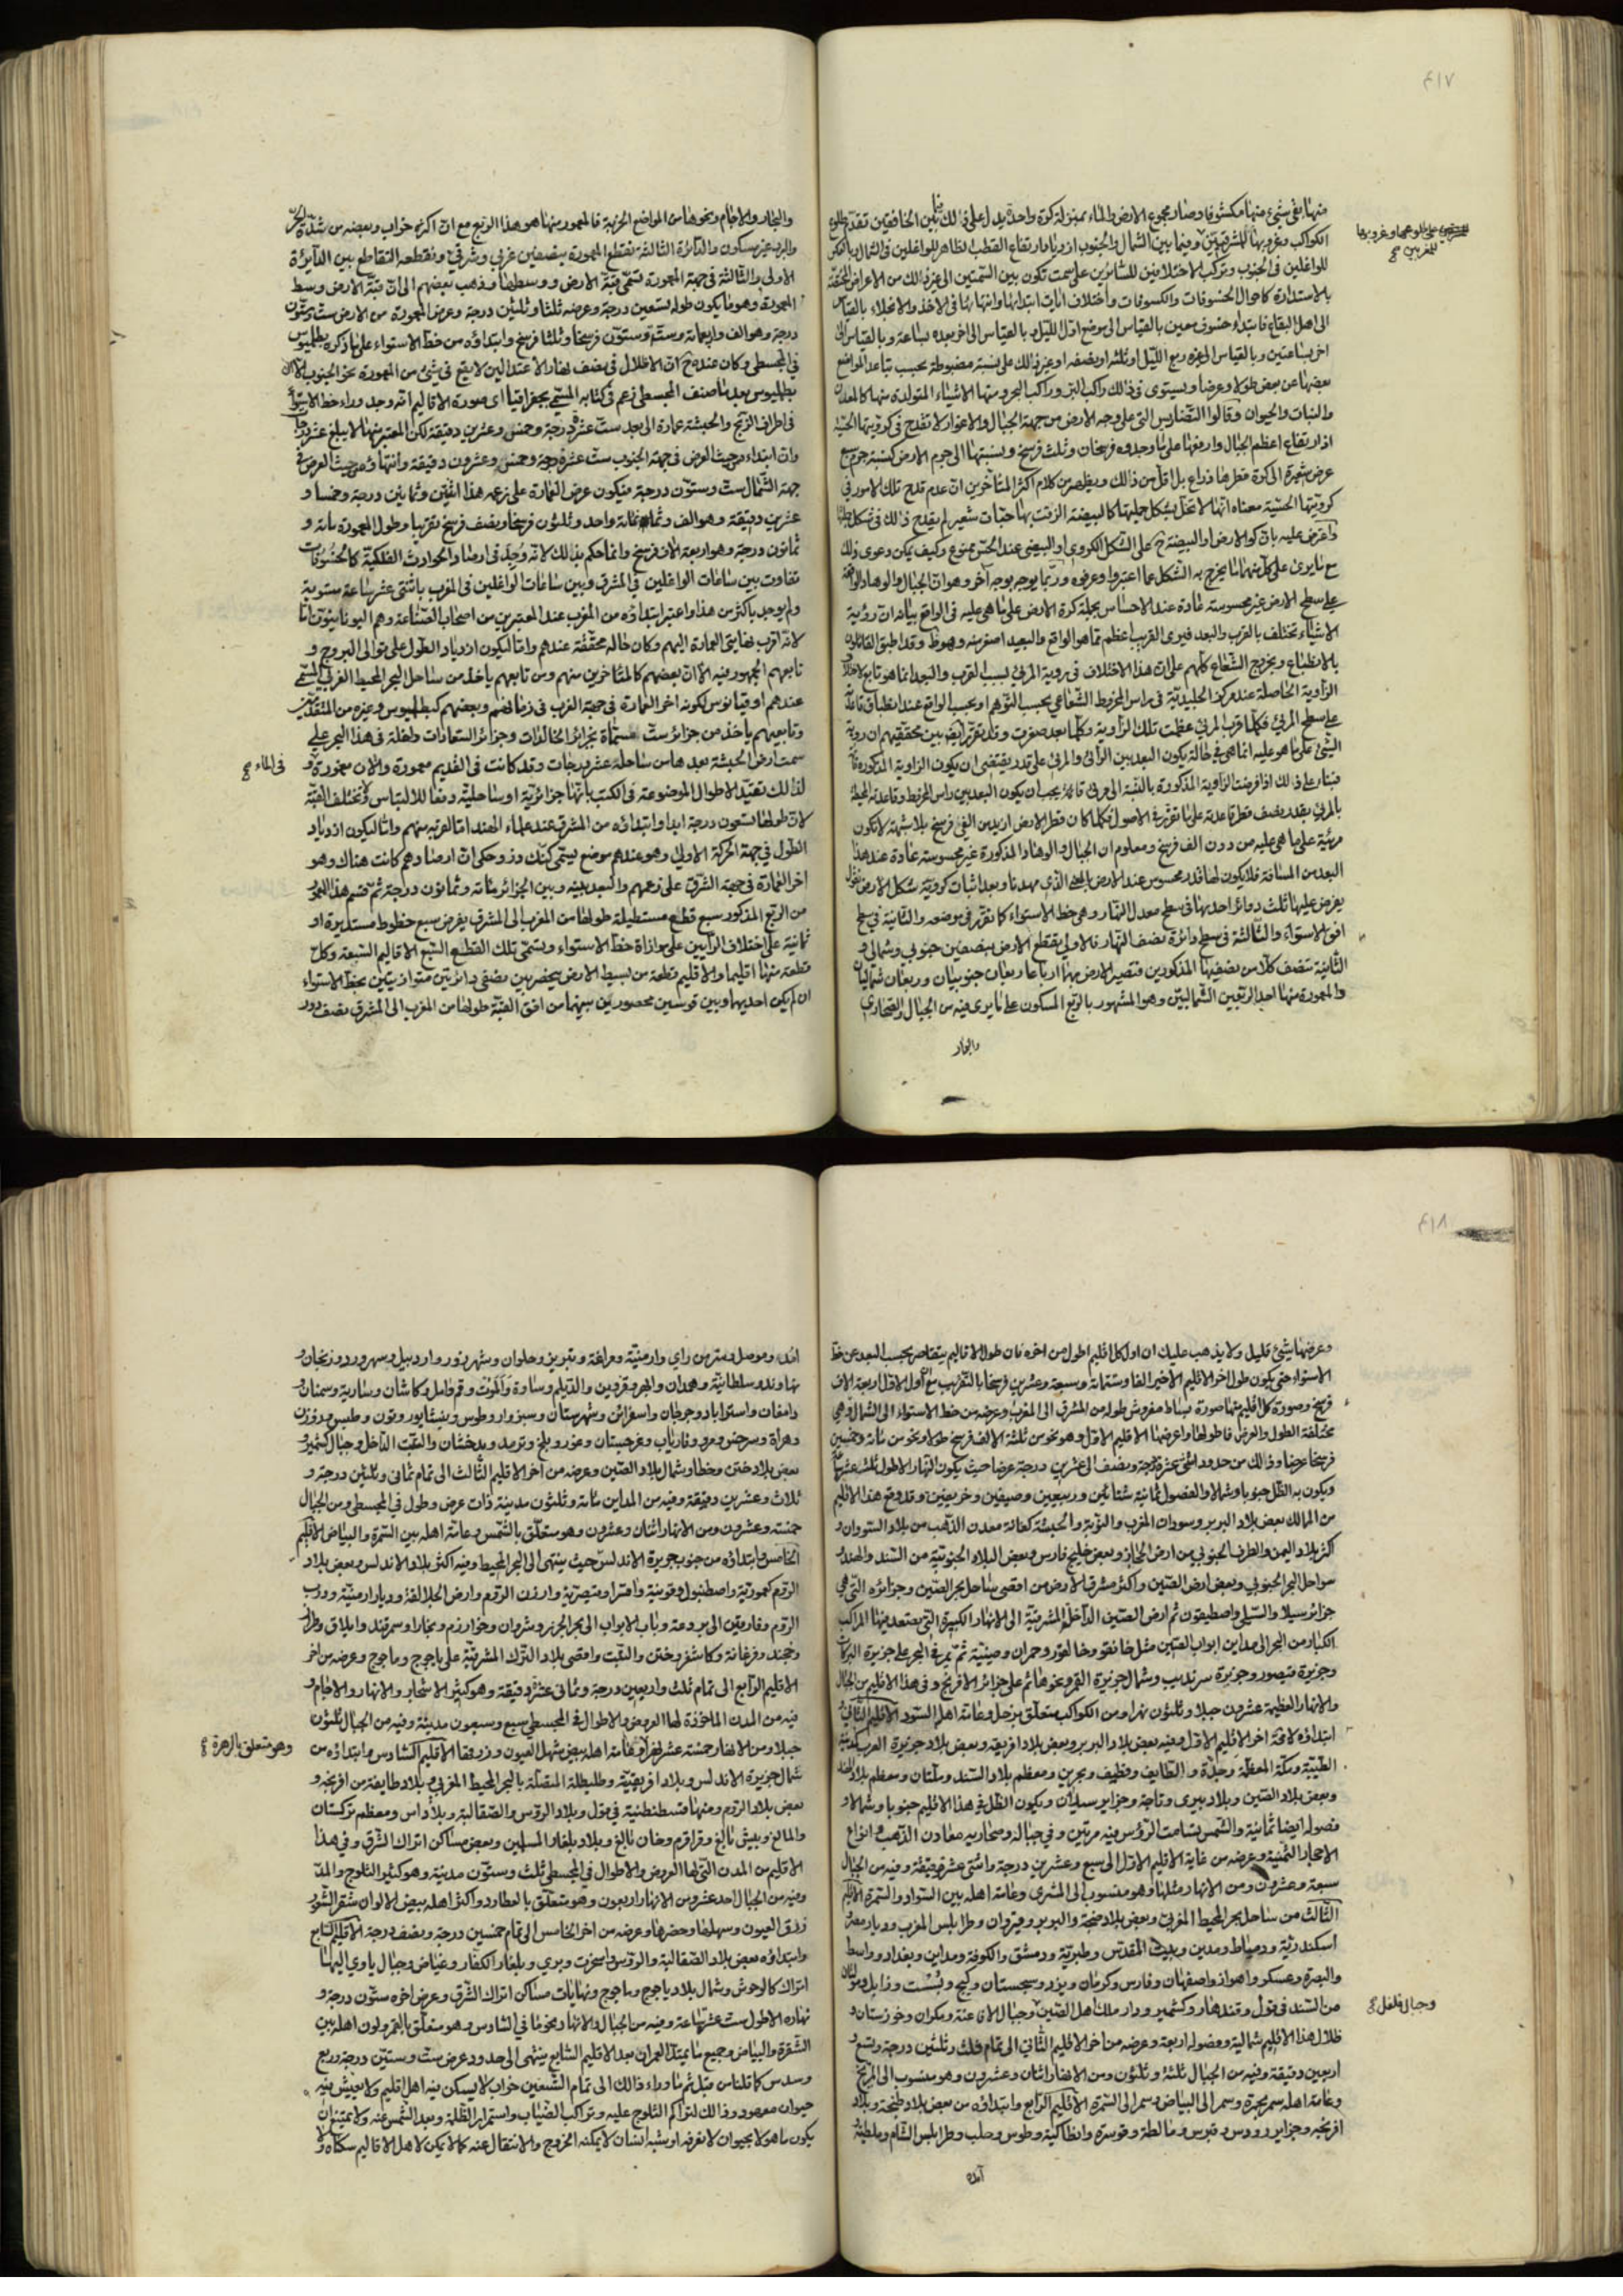 ٤١٧
منها بقي شيئ منها مكشوفا وصار مجموع الارض والماء بمنزلة كرة واحدة يدل على ذلك فيما بين الخافقين تقدم طلوع
الكواكب وغروبها للمشرقيين وفيما بين الشمال والجنوب ازدياد ارتفاع القطب الظاهر للواغلين في الشمال وبالعكس
للواغلين في الجنوب وتركب الاختلافين للسائرين على سمت يكون بين السمتين الى غير ذلك من الاعراض المختصة
بالاستدارة كاحوال الخسوفات والكسوفات واختلاف ابتدائها وانتهائها في الاخذ والانجلاء بالقياس
الى اهل البقاع فابتداء خسوف معين بالقياس الى موضع اول الليل وبالقياس الى اخر بعده بساعة وبالقياس الى
اخر بساعتين وبالقياس الى غيره ربع الليل او ثلثه او نصفه او غير ذلك على نسبة مضبوطة بحسب تباعد المواضع
بعضها عن بعض طولا وعرضا ويستوى في ذلك راكب البر وراكب البحر ومنها الاشياء المتولدة منها كالمعدن
والنبات والحيوان وقالوا التضاريس التي على وجه الارض من جهة الجبال والاغوار لا تقدح في كرويتها الحسية
اذ ارتفاع اعظم الجبال وارفعها على ما وجدوه فرسخان وثلث فرسخ ونسبتها الى جرم الارض كنسبة جرم سبع
عرض شعيرة الى كرة قطرها ذراع بل اقل من ذلك ويظهر من كلام اكثر المتأخرين ان عدم قدح تلك الامور في
كرويتها الحسية معناه انها لا تخل بشكل جملتها كالبيضة الزقت بها حبات شعير لم يقدح ذلك في شكل جملتها
واعترض عليه بان كون الارض او البيضة ح على الشكل الكروي او البيضي عند الحس ممنوع وكيف يمكن دعوى ذلك
مع ما يرى على كل منهما ما يخرج به الشكل عما اعتبروا وعرفوه وربما يوجه بوجه آخر وهو ان الجبال والوهاد الواقعة
على سطح الارض غير محسوسة عادة عند الاحساس بجملة كرة الارض على ما هي عليه في الواقع بيانه ان رؤية
الاشياء تختلف بالقرب والبعد فيرى القريب اعظم مما هو الواقع والبعيد اصغر منه وهو ظ وقد اطبق القائلون
بالانطباع وبخروج الشعاع كلهم على ان هذا الاختلاف في رؤية المرئي بسبب القرب والبعد انما هو تابع لاختلاف
الزاوية الحاصلة عند مركز الجليدية في راس المخروط الشعاعي بحسب التوهم او بحسب الواقع عند انطباق قاعدته
على سطح المرئي فكلما قرب المرئي عظمت تلك الزاوية وكلما بعد صغرت وقد تقرر ايض بين محققيهم ان رؤية
الشئ على ما هو عليه انما هي في حالة يكون البعد بين الرائي والمرئي على قدر يقتضى ان يكون الزاوية المذكورة قائمة
فبناء على ذلك اذا فرضت الزاوية المذكورة بالنسبة الى مرئي قائمة يجب ان يكون البعد بين راس المخروط وقاعدته المحيطة
بالمرئي بقدر نصف قطر قاعدته على ما تقرر في الاصول فكلما كان قطر الارض ازيد من الفي فرسخ بلا شبهة لا تكون
مرئية على ما هي عليه من دون الف فرسخ ومعلوم ان الجبال والوهاد المذكورة غير محسوسة عادة عند هذا
البعد من المسافة فلا يكون لها قدر محسوس عند الارض بالمعنى الذي مهدنا وبعد اثبات كروية شكل الارض نقول
يفرض عليها ثلث دوائر احديها في سطح معدل النهار وهي خط الاستواء كما تقرر في موضعه والثانية في سطح
افق الاستواء والثالثة في سطح دائرة نصف النهار فالاولى يقطع الارض بنصفين جنوبي وشمالي و
الثانية تنصف كلا من نصفيها المذكورين فتصير الارض بهما ارباعا ربعان جنوبيان وربعان شماليان
والمعمورة منها احد الربعين الشماليين وهو المشهور بالربع المسكون على ما يرى فيه من الجبال والصحاري
والبحار
والبحار والاجام ونحوها من المواضع الخربة فالمعمور منها هو هذا الربع مع ان اكثره خراب وبعضه من شدة الحر
والبرد غير مسكون والدائرة الثالثة تقطع المعمورة بنصفين غربي وشرقي ونقطعه التقاطع بين الدايرة
الاولى والثالثة في جهة المعمورة تسمى قبة الارض ووسطها وذهب بعضهم الى ان قبة الارض وسط
المعمورة وهو ما يكون طوله تسعين درجة وعرضه ثلثا وثلثين درجة وعرض المعمورة من الارض ست وستون
درجة وهو الف واربعمائة وستة وستون فرسخا وثلثا فرسخ وابتداؤه من خط الاستواء على ما ذكره بطلميوس
في المجسطي وكان عنده ح ان الاظلال في نصف نهار الاعتدالين لا يقع في شئ من المعمورة نحو الجنوب الا ان
بطلميوس بعد ما صنف المجسطي زعم في كتابه المسمى بجغرافيا اى صورة الاقاليم انه وجد وراء خط الاستواء
في اطراف الزنج والحبشة عمارة الى بعد ست عشرة درجة وخمس وعشرين دقيقة لكن المعتبر منها لا يبلغ عشر درجات
وان ابتداء من حيث العرض في جهة الجنوب ست عشرة درجة وخمس وعشرون دقيقة وانتهاؤه من حيث العرض في
جهة الشمال ست وستون درجة فيكون عرض العمارة على زعمه هذا اثنين وثمانين درجة وخمسا و
عشرين دقيقة وهو الف وثمانمائة واحد وثلثون فرسخا ونصف فرسخ تقريبا وطول المعمورة مائة و
ثمانون درجة وهو اربعة الاف فرسخ وانما حكم بذلك لانه وجد في ارصاد الحوادث الفلكية كالخسوفات
تفاوت بين ساعات الواغلين في المشرق وبين ساعات الواغلين في المغرب باثنتى عشر ساعة مستوية
ولم يوجد باكثر من هذا واعتبر ابتداؤه من المغرب عند المعتبرين من اصحاب الصناعة وهم اليونانيون اما
لانه اقرب نهايتي العمارة اليهم وكان حاله محققة عندهم واما ليكون ازدياد الطول على توالى البروج و
تابعهم الجمهور فيه الا ان بعضهم كالمتاخرين منهم ومن تابعهم ياخذ من ساحل البحر المحيط الغربي المسمى
عندهم اوقيانوس لكونه اخر العمارة في جهة الغرب في زمانهم وبعضهم كبطلميوس وغيره من المتقدمين
وتابعيهم ياخذ من جزائر ست مسماة بجزائر الخالدات وجزائر السعادات واغلة في هذا البحر على
سمت ارض الحبشة بعدها من ساحله عشر درجات وقد كانت في القديم معمورة والان مغمورة و
في الماء صح
لذلك تقيد الاطوال الموضوعة في الكتب بانها جزائرية او ساحلية دفعا للالتباس ولا تختلف القبة
لان طولها تسعون درجة ابدا وابتداؤه من المشرق عند علماء الهند اما لقربه منهم واما ليكون ازدياد
الطول في جهة الحركة الاولى وهو عندهم موضع يسمى كنك دز وحكى ان ارصادهم كانت هناك وهو
اخر العمارة في جهة الشرق على زعمهم والبعد بينه وبين الجزائر مائة وثمانون درجة ثم قسم هذا المعمور
من الربع المذكور سبع قطع مستطيلة طولها من المغرب الى المشرق بفرض سبع خطوط مستديرة او
ثمانية على اختلاف الرأيين على موازاة خط الاستواء وتسمى تلك القطع السبع الاقاليم السبعة وكل
قطعة منها اقليما والاقليم قطعة من بسيط الارض ينحصر بين نصفي دائرتين متوازيتين بخط الاستواء
ان لم يكن احديهما وبين قوسين محصورتين بينهما من افق القبة طولها من المغرب الى المشرق نصف دور
٤١٨
وعرضها بشئ قليل ولا يذهب عليك ان اول كل اقليم اطول من اخره فان طول الاقاليم يتقاصر بحسب البعد عن خط
الاستواء حتى يكون طول اخر الاقليم الاخير الفا وستمائة وسبعة وعشرين فرسخا بالتقريب مع ان اول الاول اربعة الاف
فرسخ وصورة كل اقليم منها صورة بساط مفروش طوله من المشرق الى المغرب وعرضه من خط الاستواء الى الشمال وهي
مختلفة الطول والعرض فاطولها واعرضها الاقليم الاول وهو نحو من ثلثة الالف فرسخ طولا ونحو من مائة وخمسين
فرسخا عرضا وذلك من حدود اثنى عشرة درجة ونصف الى عشرين درجة عرضا حيث يكون النهار الاطول ثلث عشر ساعة
ويكون به الظل جنوبا وشمالا والفصول ثمانية شتائين وربيعين وصيفين وخريفين وقد وقع هذا الاقليم
من الممالك بعض بلاد البربر وسودان المغرب والنوبة والحبشة كغانة معدن الذهب من بلاد السودان و
اكثر بلاد اليمن والطرف الجنوبي من ارض الحجاز وبعض خليج فارس وبعض البلاد الجنوبية من السند والهند و
سواحل البحر الجنوبي وبعض ارض الصين واكثر مشرق الارض من اقصى ساحل بحر الصين وجزائره التي هي
جزائر سيلا والسيلى واصطيفون ثم ارض الصين الداخل المشرقية الى الانهار الكبيرة التي يصعد فيها المراكب
الكبار من البحر الى مداين ابواب الصين مثل خانقو وخالفور وحمران وصينية ثم يمر في البحر على جزيرة البركان
وجزيرة قيصور وجزيرة سرنديب وشمال جزيرة القمر وغيرها ثم على جزائر الافرنج وفي هذا الاقليم من الجبال
والانهار العظيمة عشرون جبلا وثلثون نهرا ومن الكواكب متعلق بزحل وعامة اهله السود الاقليم الثاني
ابتداؤه لاقة اخر الاقليم الاول وفيه بعض بلاد البربر وبعض بلاد افريقه وبعض بلاد جزيرة العرب كمدينة
الطيبة ومكة المعظمة وجدة والطايف وقطيف وبحرين ومعظم بلاد السند وملتان ومعظم بلاد الهند
وبعض بلاد الصين وبلاد بيرى وتاجة وجزاير سيلان ويكون الظل في هذا الاقليم جنوبا وشمالا و
فصوله ايضا ثمانية والشمس تسامت الرؤس فيه مرتين وفي جباله وصحاريه معادن الذهب وانواع
الاحجار الثمينة وعرضه من غاية الاقليم الاول الى سبع وعشرين درجة واثنتى عشر دقيقة وفيه من الجبال
سبعة وعشرون ومن الانهار مثلها وهو منسوب الى المشتري وعامة اهله بين السواد والسمرة الاقليم
الثالث من ساحل بحر المحيط المغربي وبعض بلاد طنجة والبربر وقيروان وطرابلس المغرب وديار مصر و
اسكندرية ودمياط ومدين وبيت المقدس وطبرية ودمشق والكوفة ومداين وبغداد وواسط
والبصرة وعسكر واهواز واصفهان وفارس وكرمان ويزد وسجستان وكيج وبست وزابل ومولتان
من السند وقول وقندهار وكشمير ودار ملك اهل الصين وجبال الافاغنة ومكران وخوزستان و
وجبال فلفل صح
ظلال هذا الاقليم شمالية وفصوله اربعة وعرضه من اخر الاقليم الثاني الى تمام ثلث وثلثين درجة وتسع و
اربعين دقيقة وفيه من الجبال ثلثة وثلثون ومن الانهار اثنان وعشرون وهو منسوب الى المريخ
وعامة اهله سمر بحمرة وسمر الى البياض وسمر الى السمرة الاقليم الرابع وابتداؤه من بعض بلاد طنجة وبلاد
افرنجه وجزاير رودس وقبرس ومالطة وقوسرة وانطاكية وطرسوس وحلب وطرابلس الشام وملطية
آمد
آمد وموصل وسر من راى وارمنية ومراغة وتبريز وحلوان وشهرزور واردبيل وسهرورد وزنجان و
نهاوند وسلطانية وهمدان وابهر وقزوين والديلم وساوة والموت وقم وامل وكاشان وسارية وسمنان و
دامغان واستراباد وجرجان واسفرائن وشهرستان وسبزوار وطوس ونيشابور وتون وطبس وزوزن
وهراة وسرخس ومرو وفارياب وغرجستان وغور وبلخ وترمد وبدخشان والتبت الداخل وجبال كشمير و
بعض بلاد ختن وخطا وشمال بلاد الصين وعرضه من اخر الاقليم الثالث الى تمام ثمانى وثلثين درجة و
ثلاث وعشرين دقيقة وفيه من المداين مائة وثلثون مدينة ذات عرض وطول في المجسطي ومن الجبال
خمسة وعشرون ومن الانهار اثنان وعشرون وهو متعلق بالشمس وعامة اهله بين السمرة والبياض الاقليم
الخامس وابتداؤه من جنوب جزيرة الاندلس حيث ينتهى الى البحر المحيط وفيه اكثر بلاد الاندلس وبعض بلاد
الروم كعمورية واصطنبول وقونية واقسرا وقيصرية وارزن الروم وارض الجلالقة وديار ارمنية ودرب
الروم وفارقين الى بردعة وباب الابواب الى بحر الخزر وشروان وخوارزم وبخارا وسمرقند وايلاق وطراز
وخجند وفرغانة وكاشغر وختن والتبت واقصى بلاد الترك المشرقية على ياجوج وماجوج وعرضه من اخر
الاقليم الرابع الى تمام ثلث واربعين درجة وثمانى عشر دقيقة وهو كثير الاشجار والانهار والاجام و
فيه من المدن الماخوذة لها العروض والاطوال في المجسطي سبع وسبعون مدينة وفيه من الجبال ثلثون
جبلا ومن الانهار خمسة عشر نهرا وعامة اهله بيض شهل العيون وزرقها الاقليم السادس وابتداؤه من
وهو متعلق بالزهرة صح
شمال جزيرة الاندلس وبلاد افريقية وطليطلة المتصلة بالبحر المحيط المغربي وبلاد طايفة من افرنجه و
بعض بلاد الروم ومنها قسطنطنية وبلاد الروس والصقالبة وبلاد اس ومعظم تركستان
والمالغ وبيش بالغ وقراقرم وخان بالغ وبلاد بلغار المسلمين وبعض مساكن اتراك الشرق وفي هذا
الاقليم من المدن التي لها العروض والاطوال في المجسطي ثلث وستون مدينة وهو كثير الثلوج والمد
وفيه من الجبال احد عشر ومن الانهار اربعون وهو متعلق بالعطارد واكثر اهله بيض الالوان شقر الشعور
زرق العيون وسهلها وخضرها وعرضه من اخر الخامس الى تمام خمسين درجة ونصف درجة الاقليم السابع
وابتداؤه بعض بلاد الصقالبة والروس وبلغار الكفار وغياض وجبال ياوى اليها
اتراك كالوحوش وشمال بلاد ياجوج وماجوج ونهايات مساكن اتراك الشرق وعرض اخره ستون درجة و
نهاره الاطول ست عشر ساعة وفيه من الجبال والانهار نحو ما في السادس وهو متعلق بالقمر ولون اهله بين
الشقرة والبياض وجميع ما يميل العمران بعد الاقليم السابع ينتهى الى حدود عرض ست وستين درجة وربع
وسدس كما قلنا من قبل ثم ما وراء ذلك الى تمام التسعين خراب لا يسكن فيه اهل اقليم ولا يعيش فيه
حيوان معهود وذلك لتراكم الثلوج عليه وتراكب الضباب واستمرار الظلمة وبعد الشمس عنه ولا يمتنع ان
يكون ماهولا بحيوان لا نعرفه او بشبه انسان لا يمكنه الخروج والانتقال عنه كما لا يمكن لاهل الاقاليم سكناه ولا